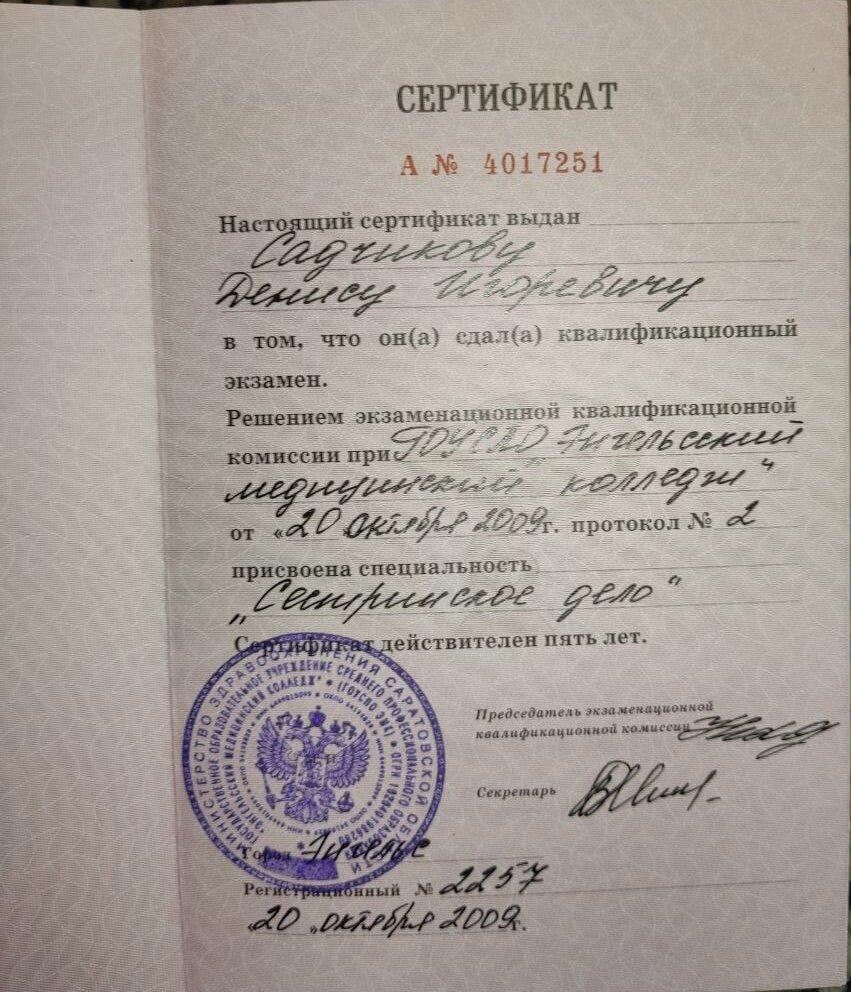 СЕРТИФИКАТ
А № 4017251
Настоящий сертификат выдан
Садчикову
Денису Игоревичу
в том, что он(а) сдал(а) квалификационный
экзамен.
Решением экзаменационной квалификационной
комиссии при ГОУСПО „Энгельсский
медицинский колледж"
от «20 октября 2009г. протокол № 2
присвоена специальность
„Сестринское дело"
Сертификат действителен пять лет.
МИНИСТЕРСТВО ЗДРАВООХРАНЕНИЯ САРАТОВСКОЙ ОБЛАСТИ
ГОСУДАРСТВЕННОЕ ОБРАЗОВАТЕЛЬНОЕ УЧРЕЖДЕНИЕ СРЕДНЕГО ПРОФЕССИОНАЛЬНОГО ОБРАЗОВАНИЯ
«ЭНГЕЛЬССКИЙ МЕДИЦИНСКИЙ КОЛЛЕДЖ» * (ГОУСПО ЭМК) * ОГРН
Председатель экзаменационной
квалификационной комиссии
Секретарь
Город Энгельс
Регистрационный № 2257
«20 „октября 2009г.